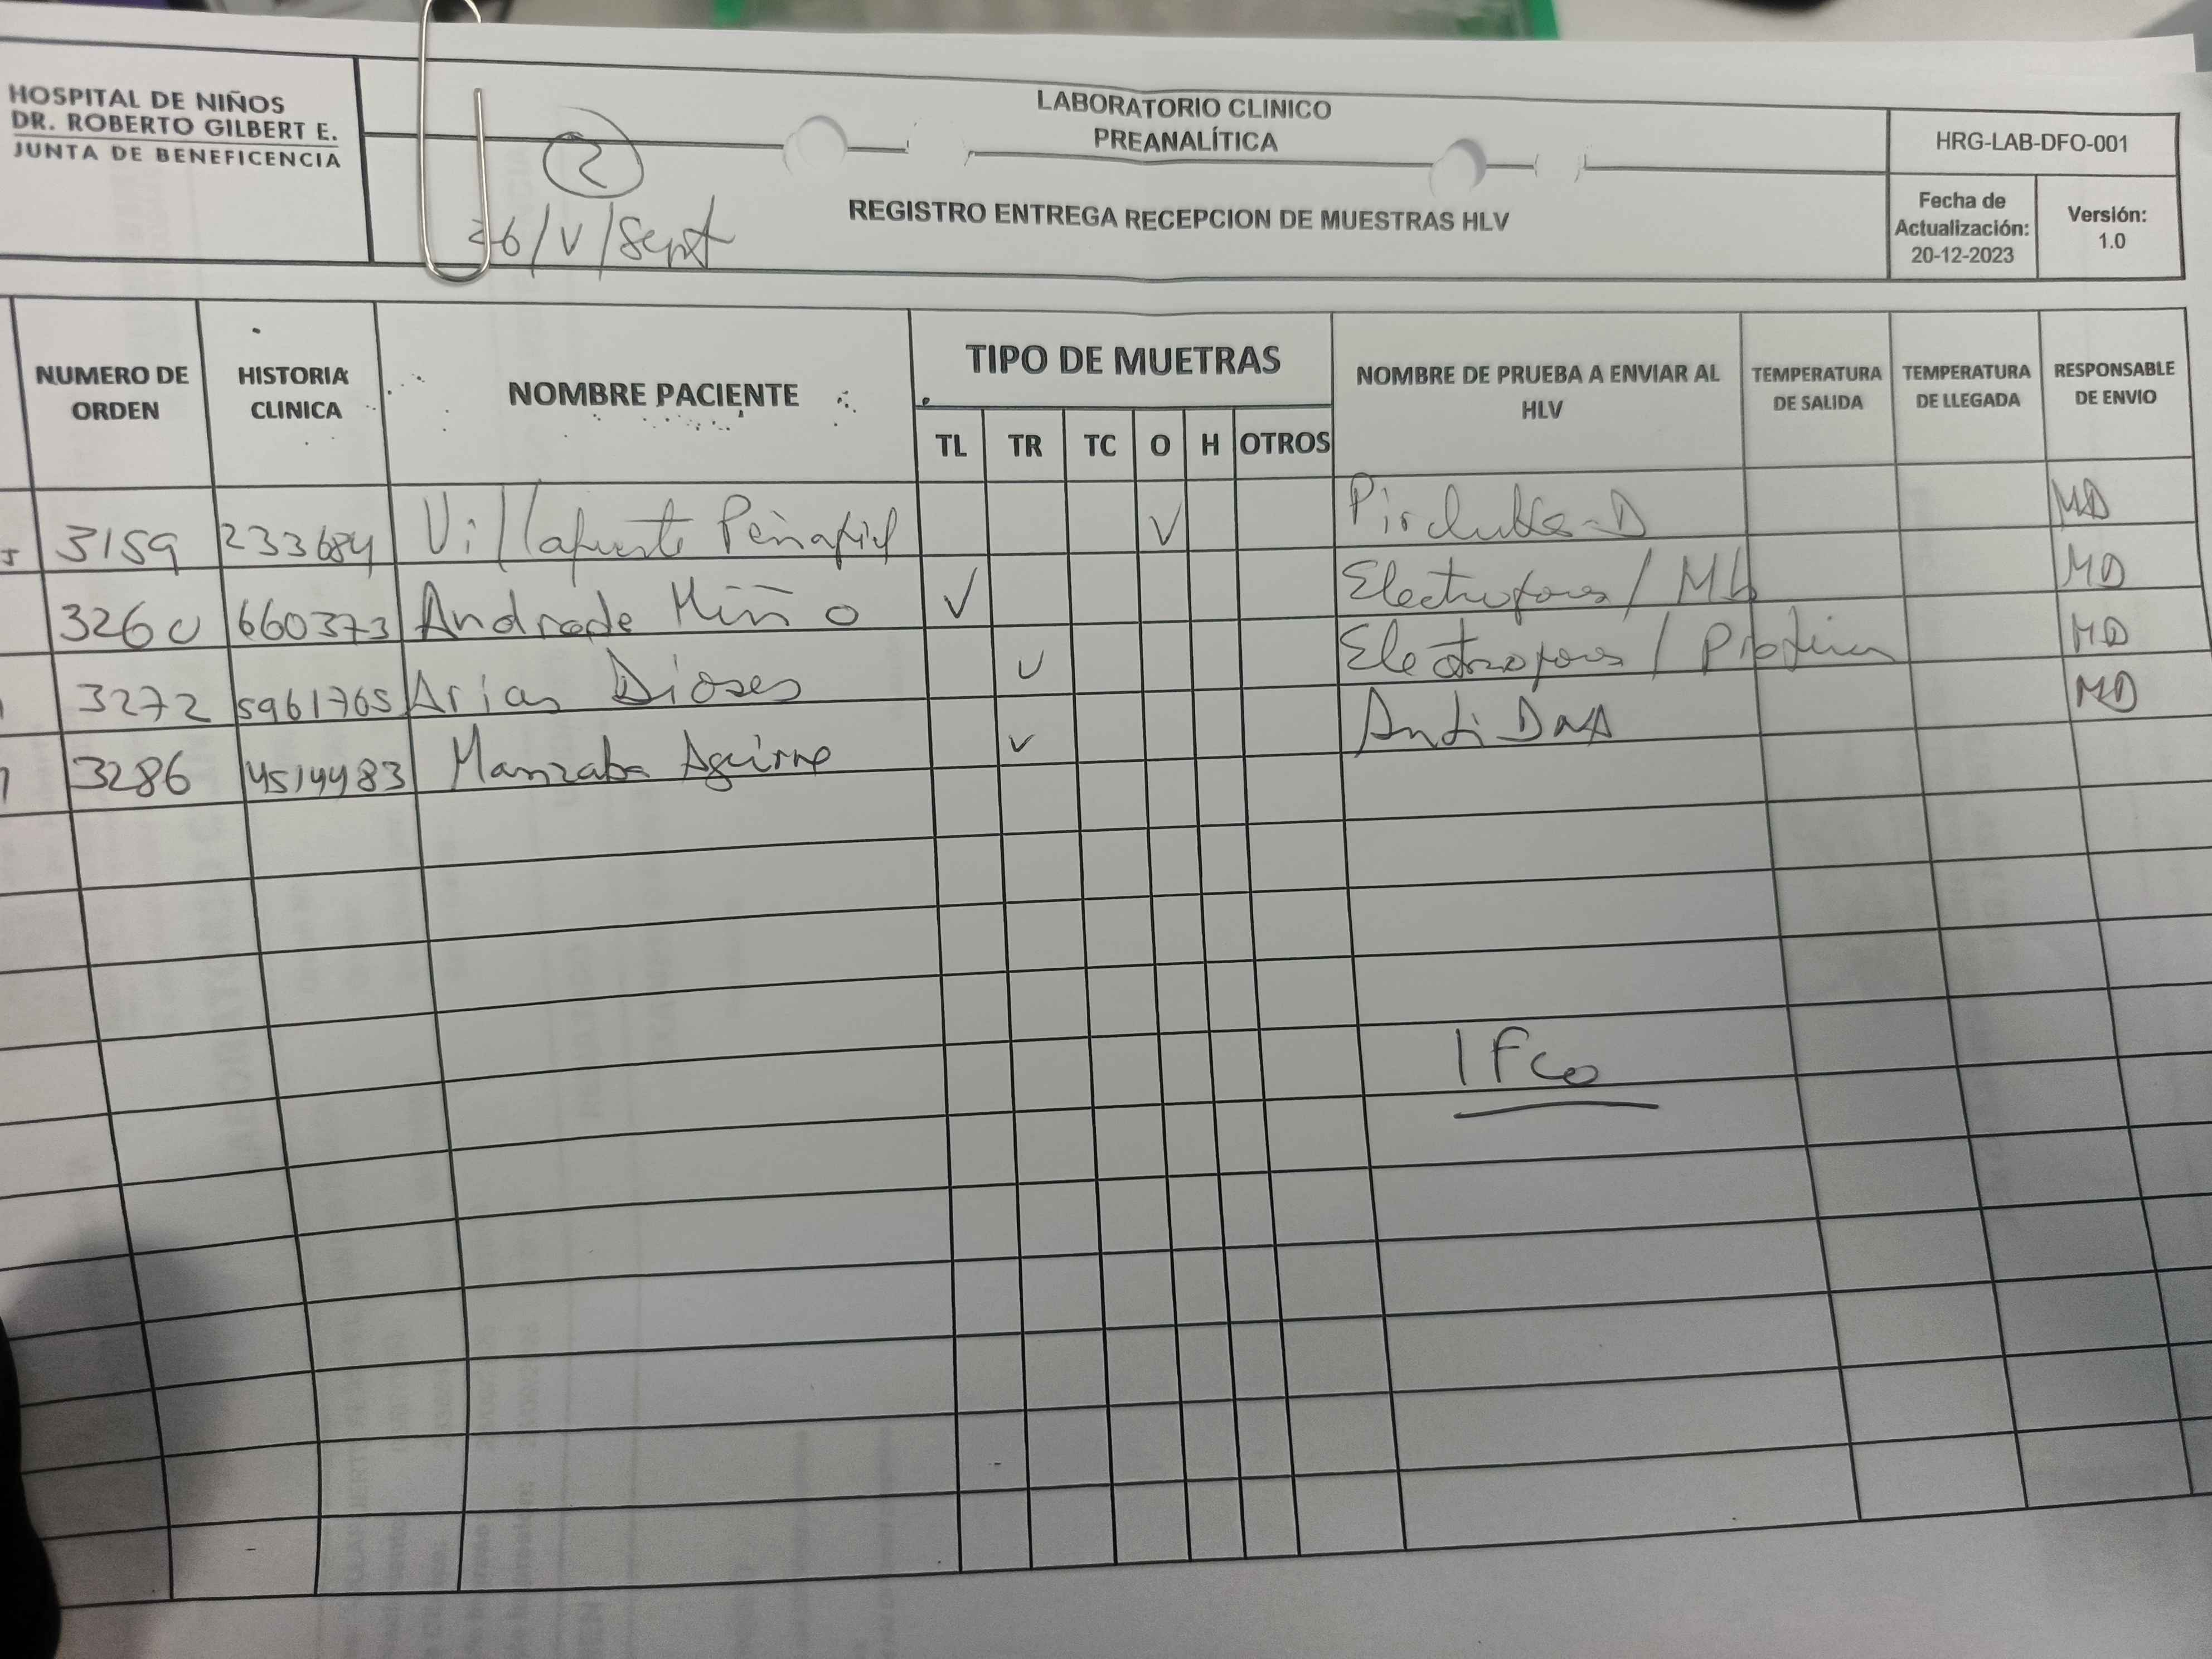 HOSPITAL DE NIÑOS
DR. ROBERTO GILBERT E.
JUNTA DE BENEFICENCIA
2
26/V/Sept
LABORATORIO CLINICO
PREANALÍTICA
REGISTRO ENTREGA RECEPCION DE MUESTRAS HLV
HRG-LAB-DFO-001
Fecha de
Actualización:
20-12-2023
Versión:
1.0
NUMERO DE
ORDEN
HISTORIA
CLINICA
NOMBRE PACIENTE
TIPO DE MUETRAS
TL TR TC O H OTROS
NOMBRE DE PRUEBA A ENVIAR AL
HLV
TEMPERATURA
DE SALIDA
TEMPERATURA
DE LLEGADA
RESPONSABLE
DE ENVIO
3159 233684 Villafuerte Peñafiel √ MD
3260 660373 Andrade Miño √ Electrofores / MD
3272 5961765 Arias Dioses √ Electrofores / Proteinas MD
3286 4514483 Manzaba Aguirre √ Anti DNA MD